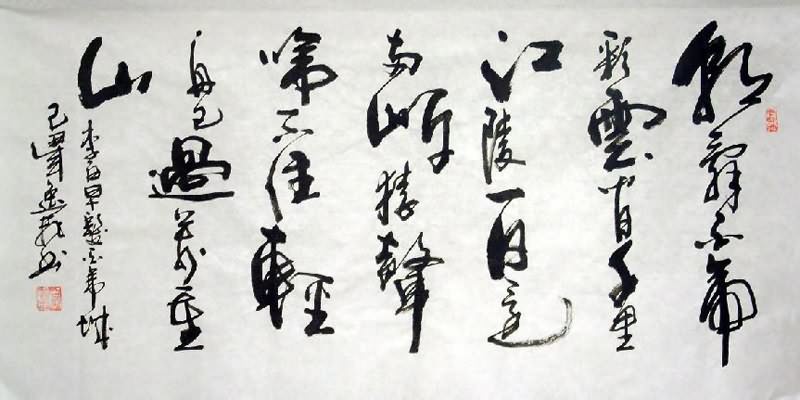 朝辞白帝
彩雲間千里
江陵一日還
两岸猿聲
啼不住輕
舟已過萬重
山
李白早發白帝城